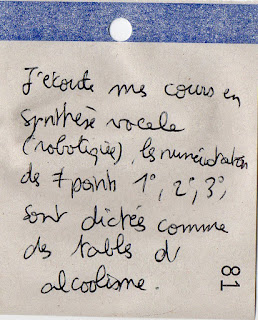 J'écoute mes cours en
synthèse vocale
(robotique), les numérotation
des 7 point 1°, 2°, 3°,
sont dictés comme
des tables d
alcoolisme.
81